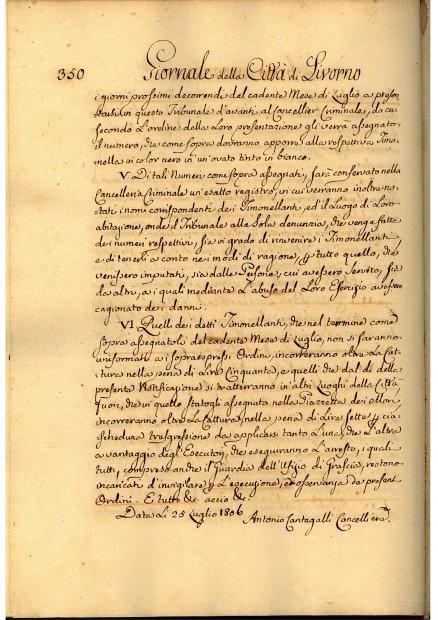 350 Giornale della Città di Livorno
i giorni prossimi decorrendi del cadente Mese di Luglio a presen
tarsi in questo Tribunale d'avanti al Cancellier Criminale, da cui
secondo L'ordine della Loro presentazione gli verrà assegnato
il numero, che come sopra dovranno apporre alla respettiva Timo
nella in color nero in un ovato tinto in bianco.
V. Di tali Numeri come sopra assegnati, sarà conservato nella
Cancelleria Criminale un'esatto registro, in cui verranno inoltre no
tati i nomi corrispondenti dei Timonellanti, ed il Luogo di Loro
abitazione, onde il Tribunale alla sola denunzia, che venga fatta
dei numeri respettivi, sia in grado di rinvenire i Timonellanti
e di tenerli a conto nei modi di ragione, p tutto quello, che
venissero imputati, sia dalle Persone, cui avessero servito, sia
da altri, a i quali mediante L'abuso del Loro Esercizio avessero
cagionato dei danni.
VI. Quelli dei detti Timonellanti, che nel termine come
sopra assegnatoli del cadente Mese di Luglio, non si saranno
uniformati a i sopraespressi Ordini, incorreranno oltre La Cat
tura nella pena di Lire Cinquanta, e quelli che dal dì della
presente Notificazione si tratterranno in altri Luoghi della Città
fuori, che in quello statogli assegnato nella Piazzetta dei
incorreranno oltre La Cattura, nella pena di Lire Sette p cia
scheduna trasgressione da applicarsi tanto L'una, che L'altra
a vantaggio degl'Esecutori, che eseguiranno L'arresto, i quali
tutti, compresi anche il Guardia dell'Ufizio di Grascia, restono
incaricati d'invigilare p L'esecuzione, ed osservanza de presenti
Ordini. E tutto &c. acciò &c.
Data Li 25 Luglio 1806
Antonio Cantagalli Cancelliere.